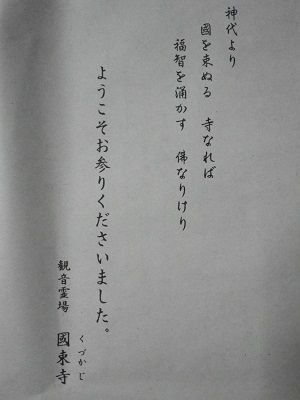 神代より
國を束ぬる　寺なれば
福智を涌かす　佛なりけり
ようこそお参りくださいました。
観音霊場　國束寺
くづかじ